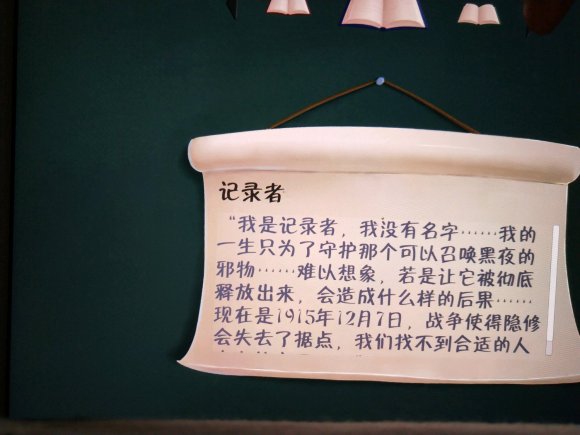 记录者
“我是记录者，我没有名字……我的
一生只为了守护那个可以召唤黑夜的
邪物……难以想象，若是让它被彻底
释放出来，会造成什么样的后果……
现在是1915年12月7日，战争使得隐修
会失去了据点，我们找不到合适的人